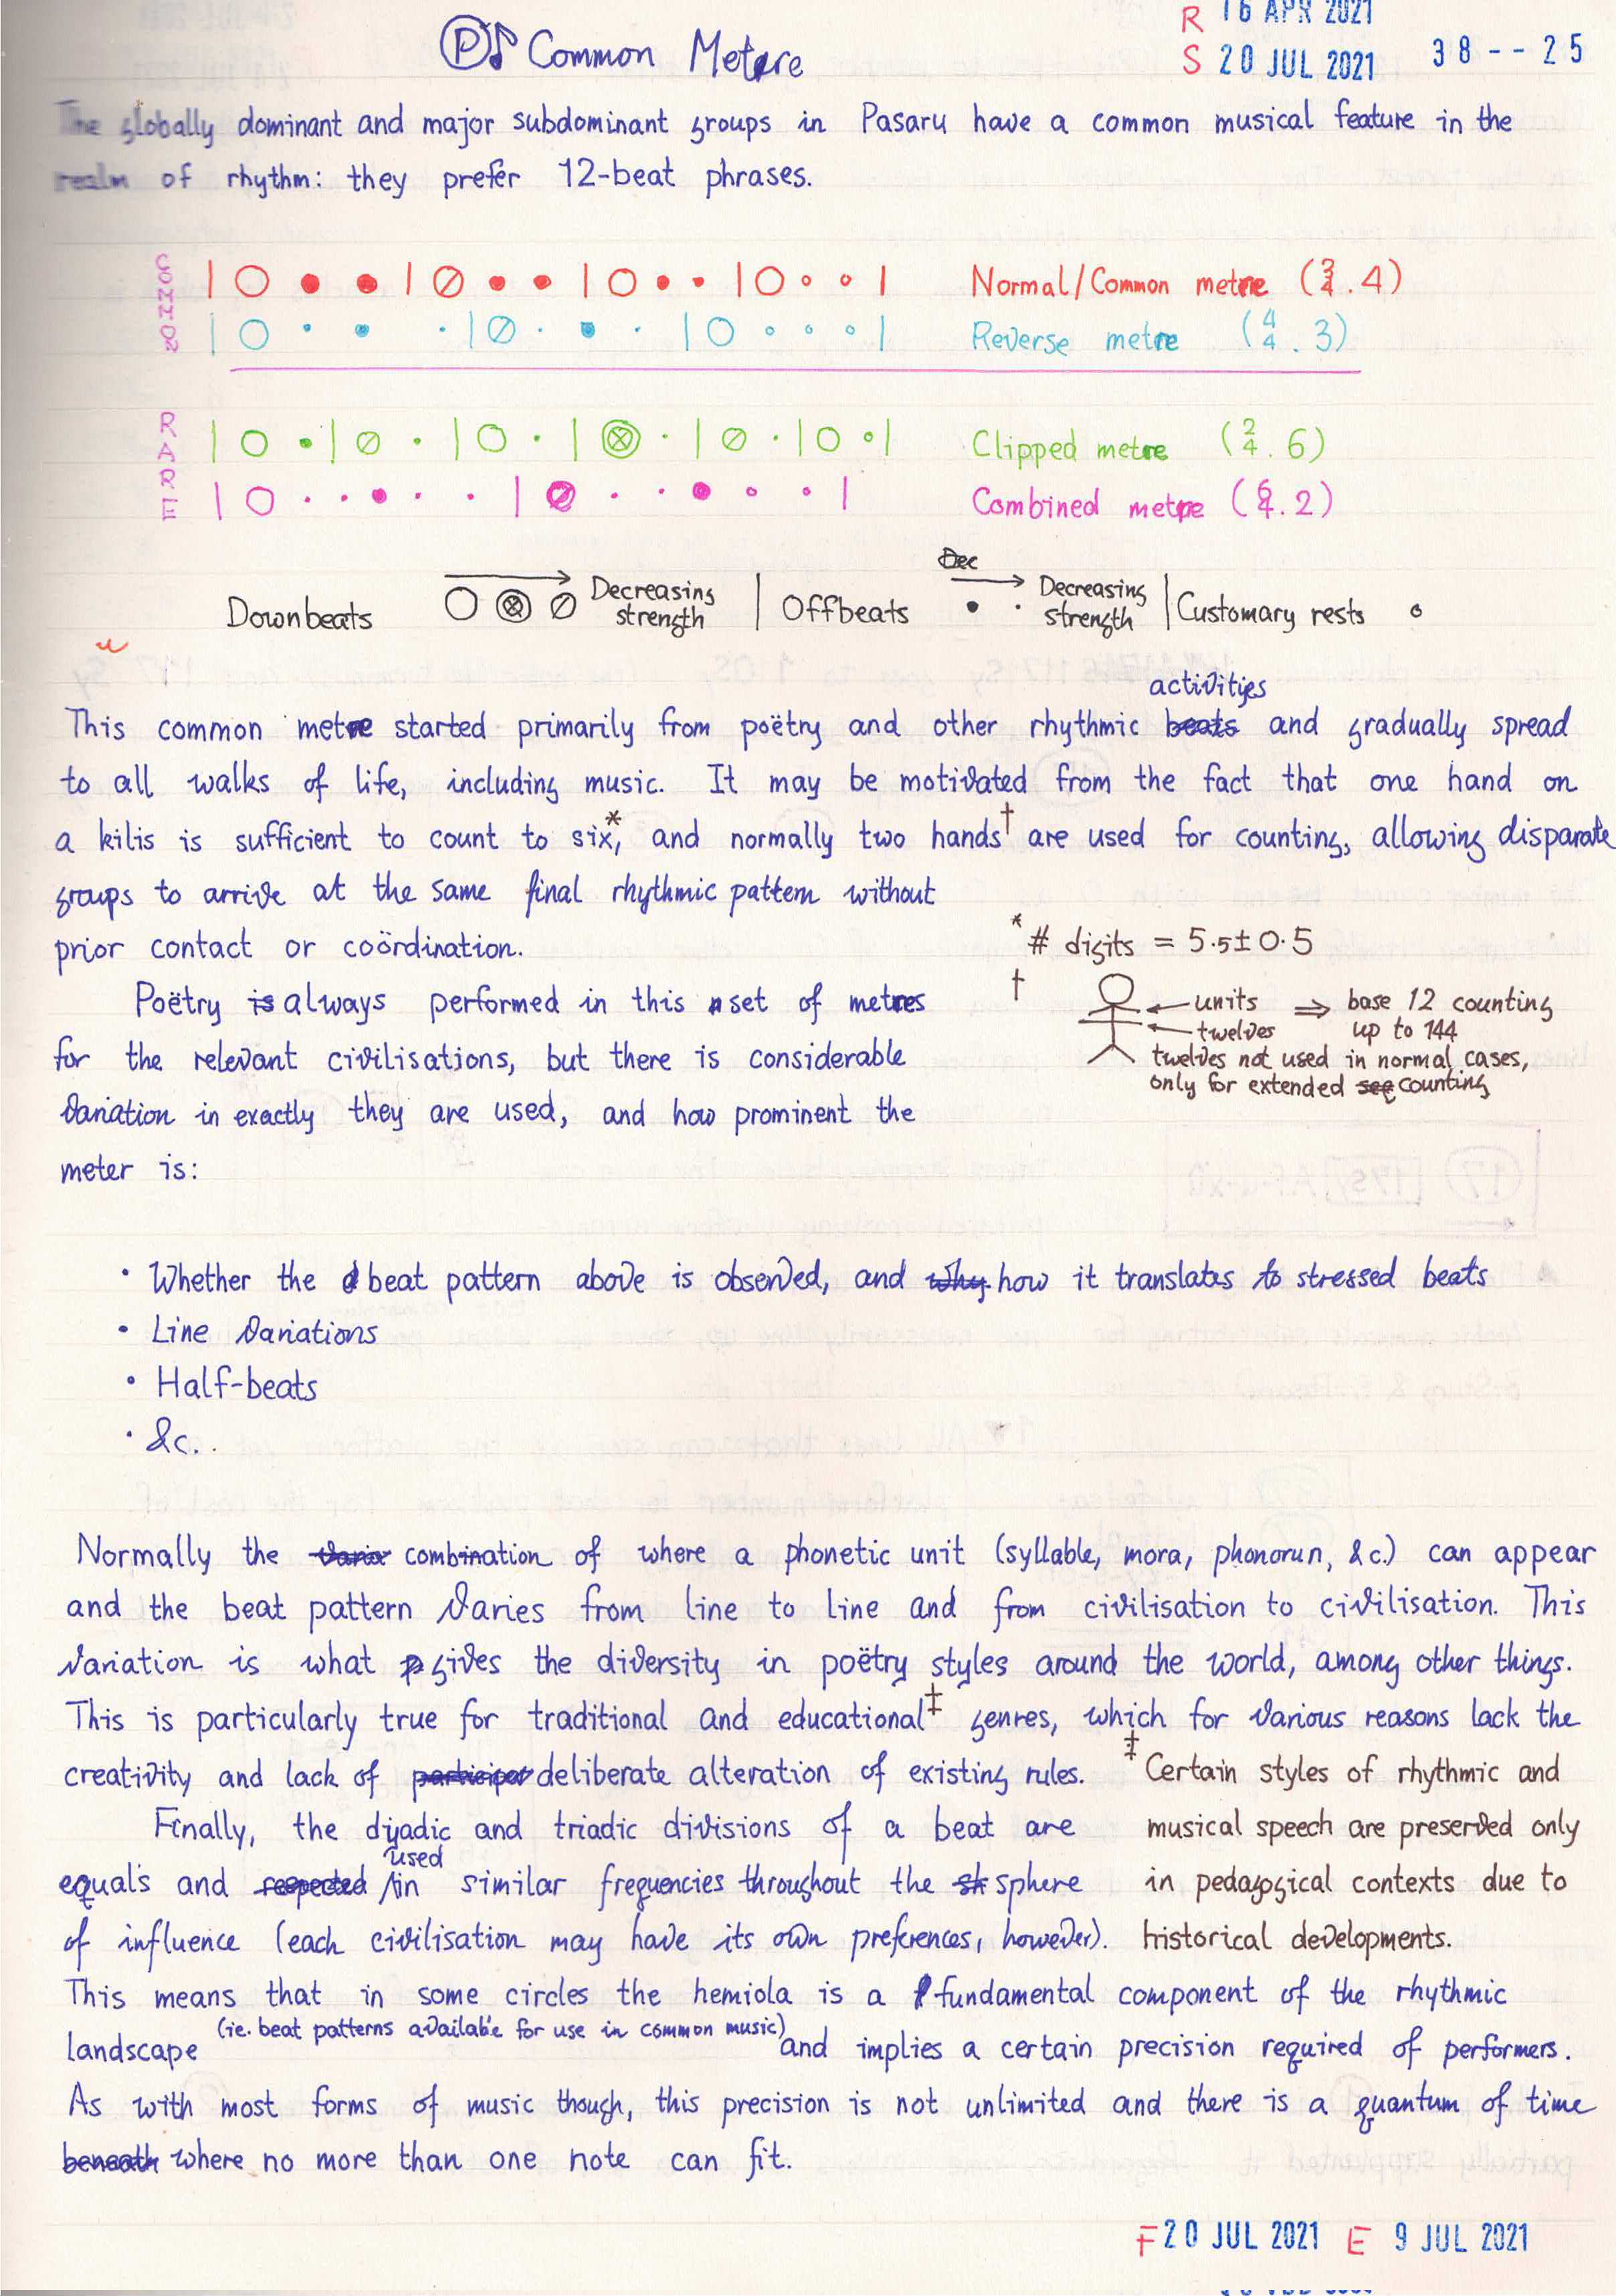 Ⓟ♪ Common Metre
R 16 APR 2021
S 20 JUL 2021
38 -- 25
The globally dominant and major subdominant groups in Pasaru have a common musical feature in the
realm of rhythm: they prefer 12-beat phrases.
COMMON
Normal/Common metre (3/4 . 4)
Reverse metre (4/4 . 3)
RARE
Clipped metre (2/4 . 6)
Combined metre (6/4 . 2)
Dec
Downbeats → Decreasing strength | Offbeats → Decreasing strength | Customary rests
activities
This common metre started primarily from poëtry and other rhythmic beats and gradually spread
to all walks of life, including music. It may be motivated from the fact that one hand on
a kilis is sufficient to count to six*, and normally two hands† are used for counting, allowing disparate
groups to arrive at the same final rhythmic pattern without
prior contact or coördination.
* # digits = 5.5±0.5
† ← units ⇒ base 12 counting
← twelves up to 144
twelves not used in normal cases,
only for extended see counting
Poëtry is always performed in this set of metres
for the relevant civilisations, but there is considerable
variation in exactly they are used, and how prominent the
meter is:
• Whether the beat pattern above is observed, and why how it translates to stressed beats
• Line variations
• Half-beats
• &c..
Normally the varia combination of where a phonetic unit (syllable, mora, phonorun, &c.) can appear
and the beat pattern varies from line to line and from civilisation to civilisation. This
variation is what p gives the diversity in poëtry styles around the world, among other things.
This is particularly true for traditional and educational‡ genres, which for various reasons lack the
creativity and lack of participat deliberate alteration of existing rules.
‡ Certain styles of rhythmic and
musical speech are preserved only
in pedagogical contexts due to
historical developments.
Finally, the dyadic and triadic divisions of a beat are
used
equals and respected /in similar frequencies throughout the sh sphere
of influence (each civilisation may have its own preferences, however).
This means that in some circles the hemiola is a fundamental component of the rhythmic
landscape (ie. beat patterns available for use in common music) and implies a certain precision required of performers.
As with most forms of music though, this precision is not unlimited and there is a quantum of time
beneath where no more than one note can fit.
F 20 JUL 2021 E 9 JUL 2021